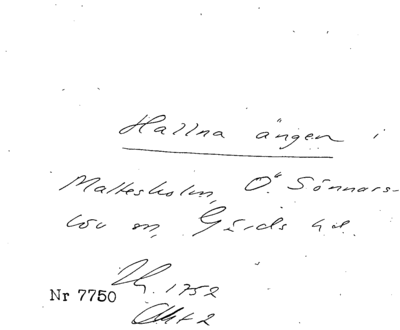 Hallna ängen i
Maltesholm, Ö. Sönnars-
löv sn, Gärds hd.
1752
Nr 7750
Akt 2